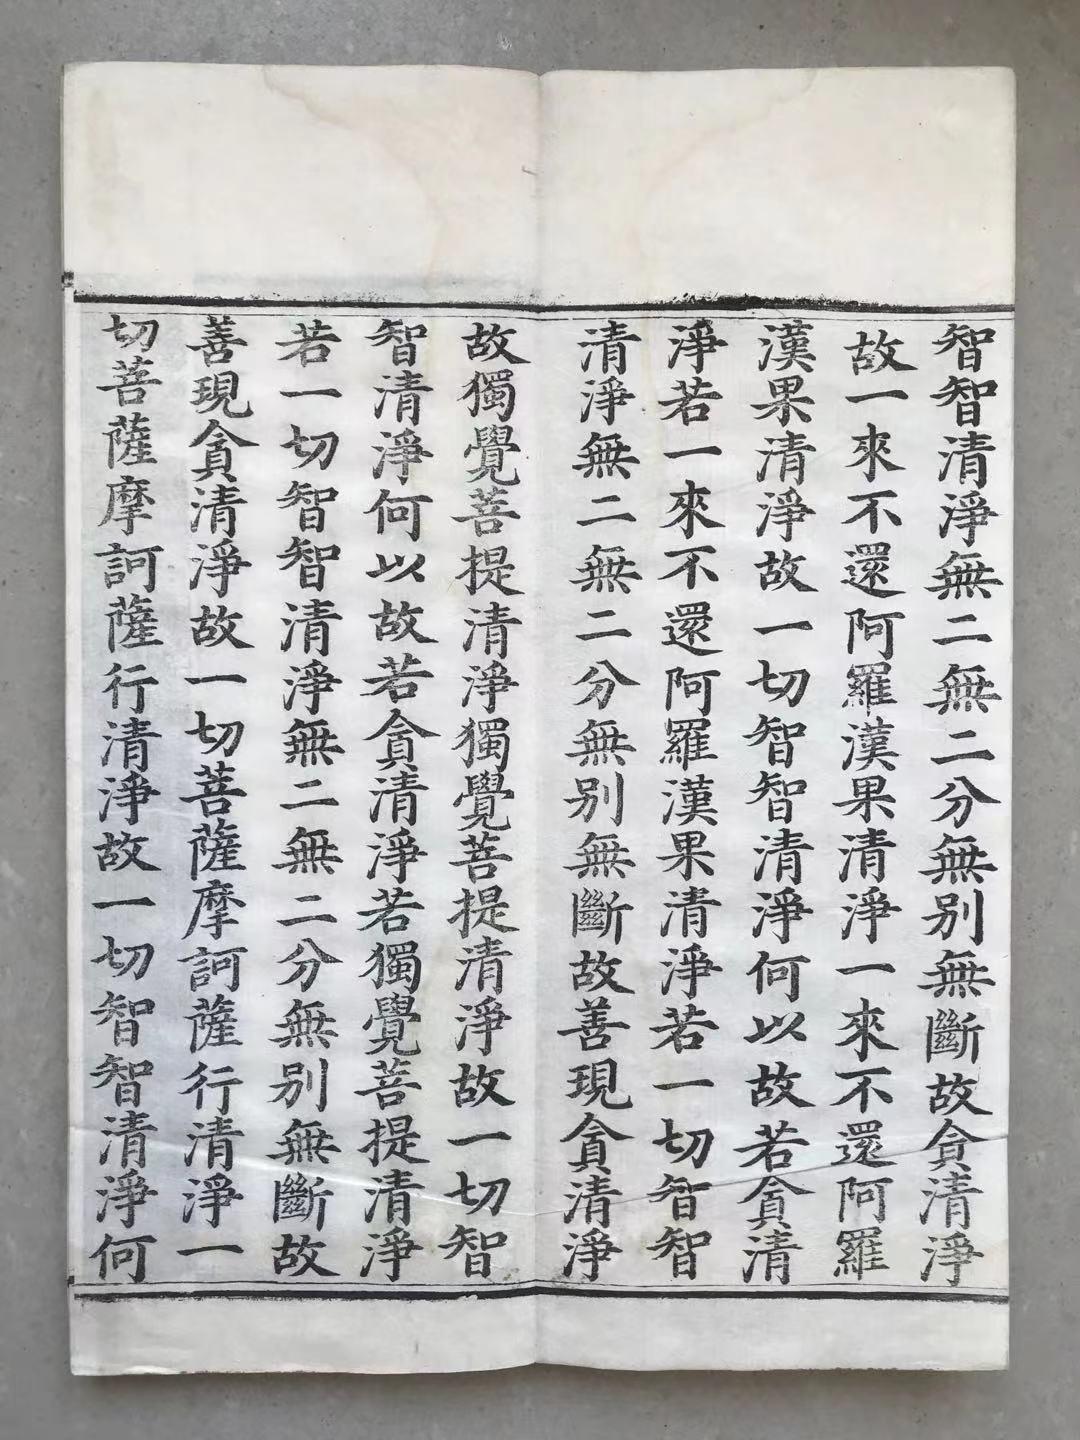 智智清淨無二無二分無別無斷故貪清淨
故一來不還阿羅漢果清淨一來不還阿羅
漢果清淨故一切智智清淨何以故若貪清
淨若一來不還阿羅漢果清淨若一切智智
清淨無二無二分無別無斷故善現貪清淨
故獨覺菩提清淨獨覺菩提清淨故一切智
智清淨何以故若貪清淨若獨覺菩提清淨
若一切智智清淨無二無二分無別無斷故
善現貪清淨故一切菩薩摩訶薩行清淨一
切菩薩摩訶薩行清淨故一切智智清淨何